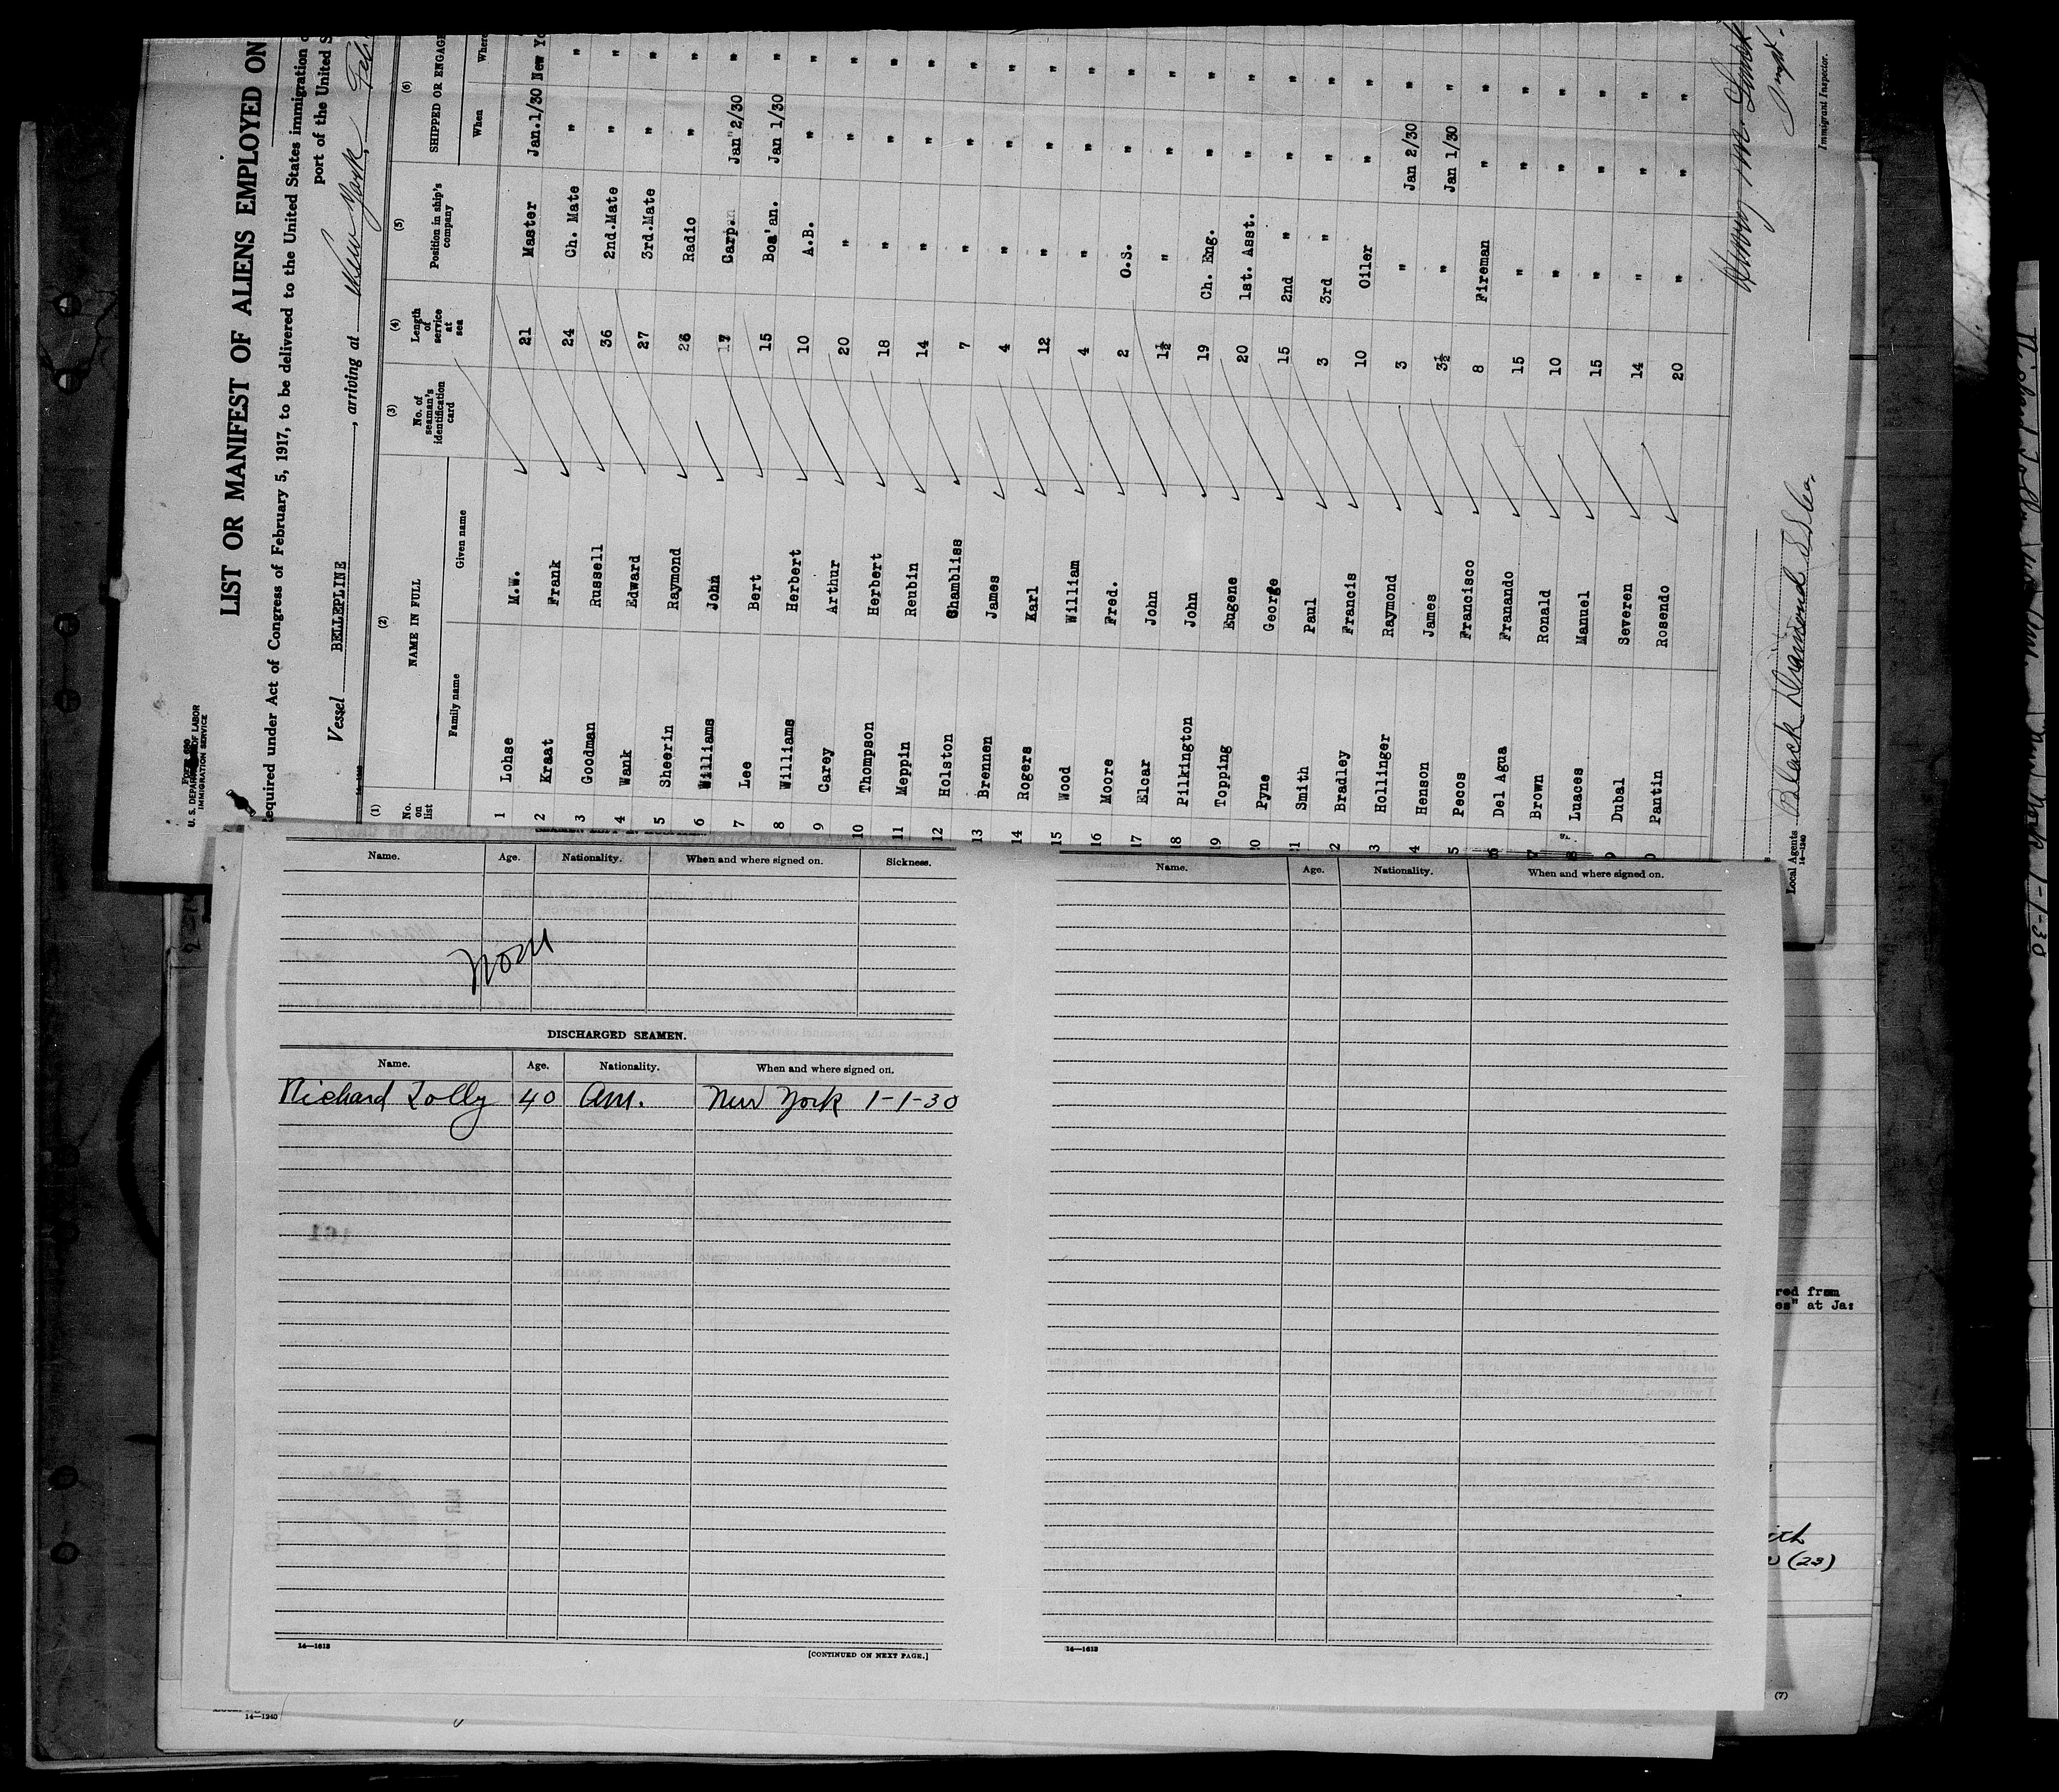 Form 680
U. S. DEPARTMENT OF LABOR
IMMIGRATION SERVICE
LIST OR MANIFEST OF ALIENS EMPLOYED ON
equired under Act of Congress of February 5, 1917, to be delivered to the United States immigration
port of the United S
Vessel BELLEPLINE, arriving at New York, Feb
(1) (2) (3) (4) (5) (6)
No. on list NAME IN FULL No. of seaman's identification card Length of service at sea Position in ship's company SHIPPED OR ENGAGE
Family name Given name When Where
1 Lohse M.W. 21 Master Jan.1/30 New Yo
2 Kraat Frank 24 Ch. Mate " "
3 Goodman Russell 36 2nd.Mate " "
4 Wank Edward 27 3rd.Mate " "
5 Sheerin Raymond 26 Radio " "
6 Williams John 17 Carp. Jan 2/30 "
7 Lee Bert 15 Bos'an. Jan 1/30 "
8 Williams Herbert 10 A.B. " "
9 Carey Arthur 20 " " "
10 Thompson Herbert 18 " " "
11 Meppin Reubin 14 " " "
12 Holston Chambliss 7 " " "
13 Brennen James 4 " " "
14 Rogers Karl 12 " " "
15 Wood William 4 " " "
16 Moore Fred. 2 O.S. " "
17 Elcar John 1½ " " "
18 Pilkington John 19 Ch. Eng. " "
19 Topping Eugene 20 1st. Asst. " "
20 Pyne George 15 2nd " " "
1 Smith Paul 3 3rd " " "
2 Bradley Francis 10 Oiler " "
3 Hollinger Raymond 3 " Jan 2/30 "
4 Henson James 3½ " Jan 1/30 "
5 Pecos Francisco 8 Fireman " "
6 Del Agua Franando 15 " " "
7 Brown Ronald 10 " " "
8 Luaces Manuel 15 " " "
9 Dubal Severen 14 " " "
0 Pantin Rosendo 20 " " "
Immigrant Inspector.
Local Agents Black Diamond SS Co.
14—1240
Name. Age. Nationality. When and where signed on. Sickness.
DISCHARGED SEAMEN.
Name. Age. Nationality. When and where signed on.
Richard Jolly 40 Am. New York 1-1-30
14—1613
[CONTINUED ON NEXT PAGE.]
Name. Age. Nationality. When and where signed on.
14—1613
red from
es" at Ja:
ith
(23)
(7)
14—1240